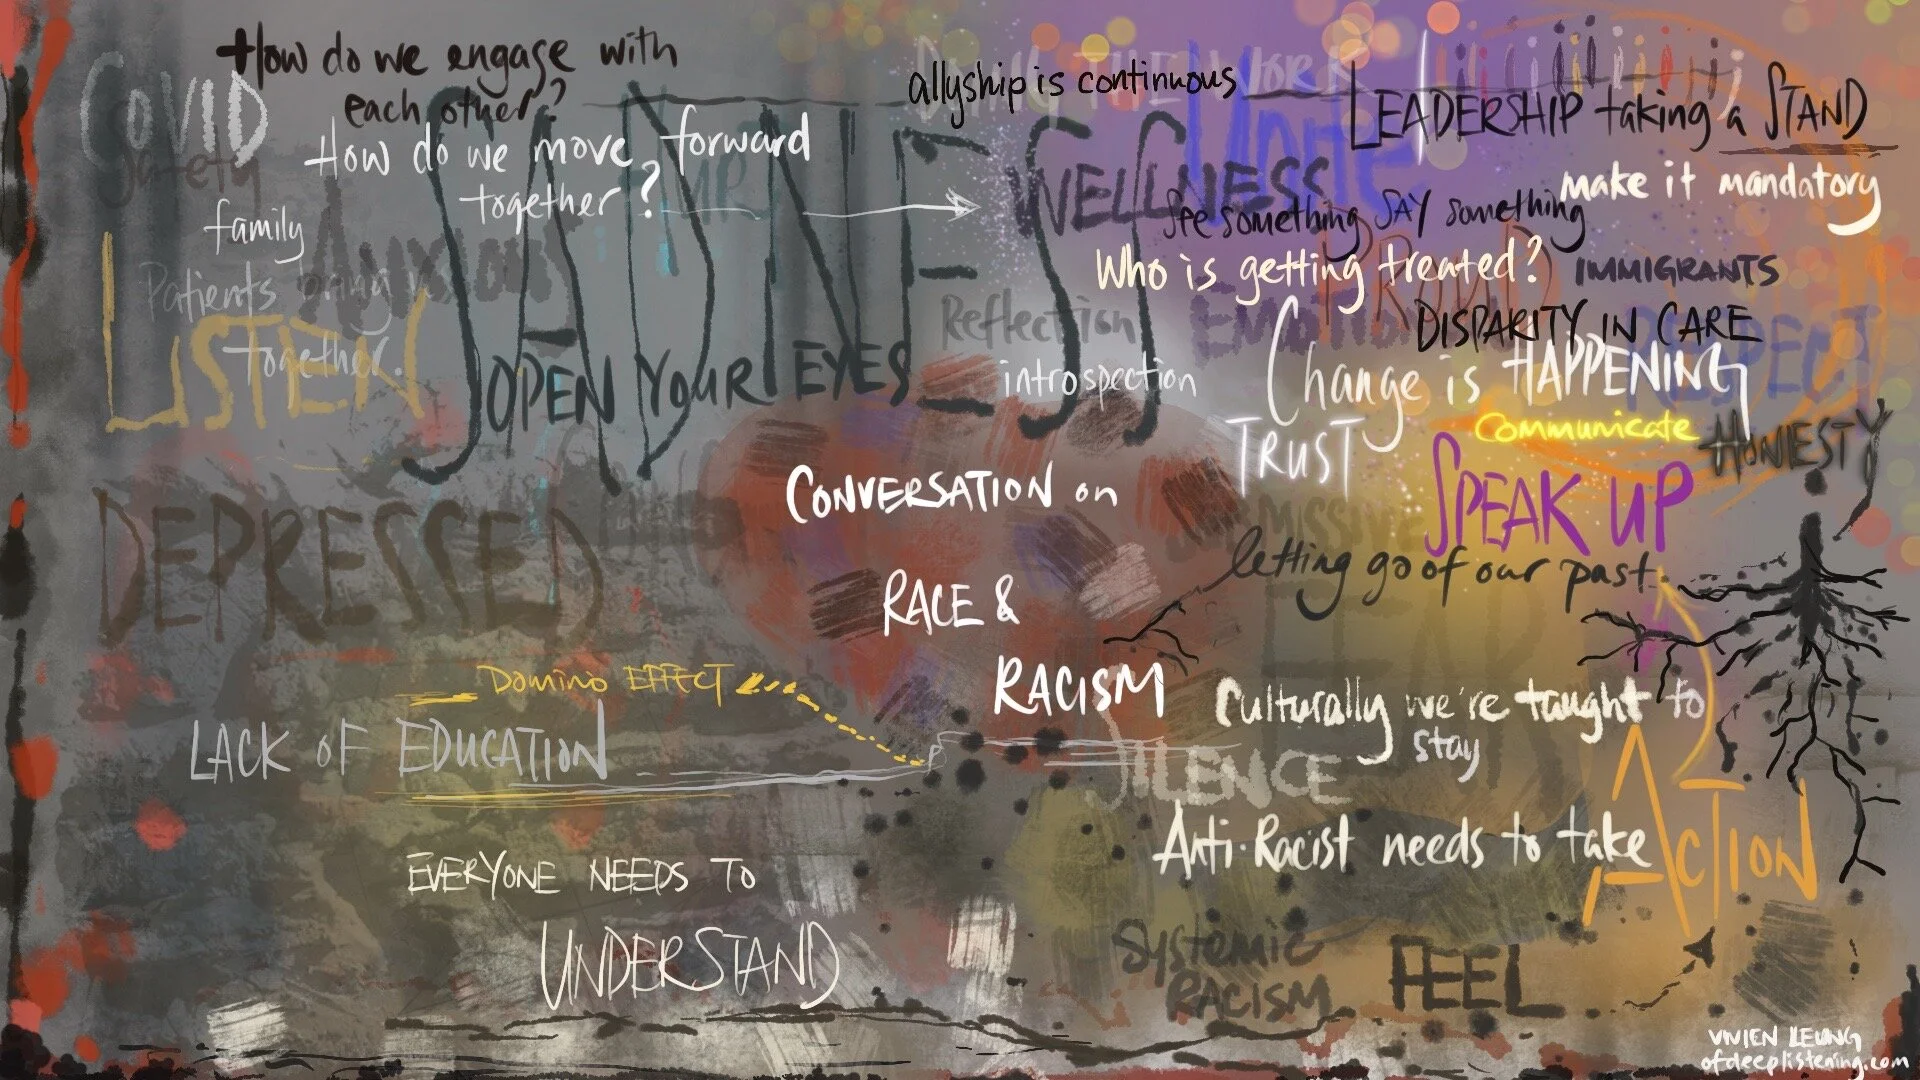 How do we engage with
each other?
COVID
Safety
How do we move forward
together?
family
ANXIOUS
Patients bring us
together.
LISTEN
SADNESS
OPEN YOUR EYES
DEPRESSED
DOING THE WORK
allyship is continuous
Unite
LEADERSHIP taking a STAND
make it mandatory
WELLNESS
See something SAY something
Who is getting treated?
IMMIGRANTS
PROUD
Reflection
introspection
DISPARITY IN CARE
RESPECT
Change is HAPPENING
TRUST
Communicate
HONESTY
SPEAK UP
CONVERSATION on
RACE &
RACISM
letting go of our past.
FEAR
DOMINO EFFECT
LACK OF EDUCATION
Culturally we're taught to
stay
SILENCE
Anti-Racist needs to take
ACTION
EVERYONE NEEDS TO
UNDERSTAND
Systemic
RACISM
FEEL
VIVIEN LEUNG
ofdeeplistening.com